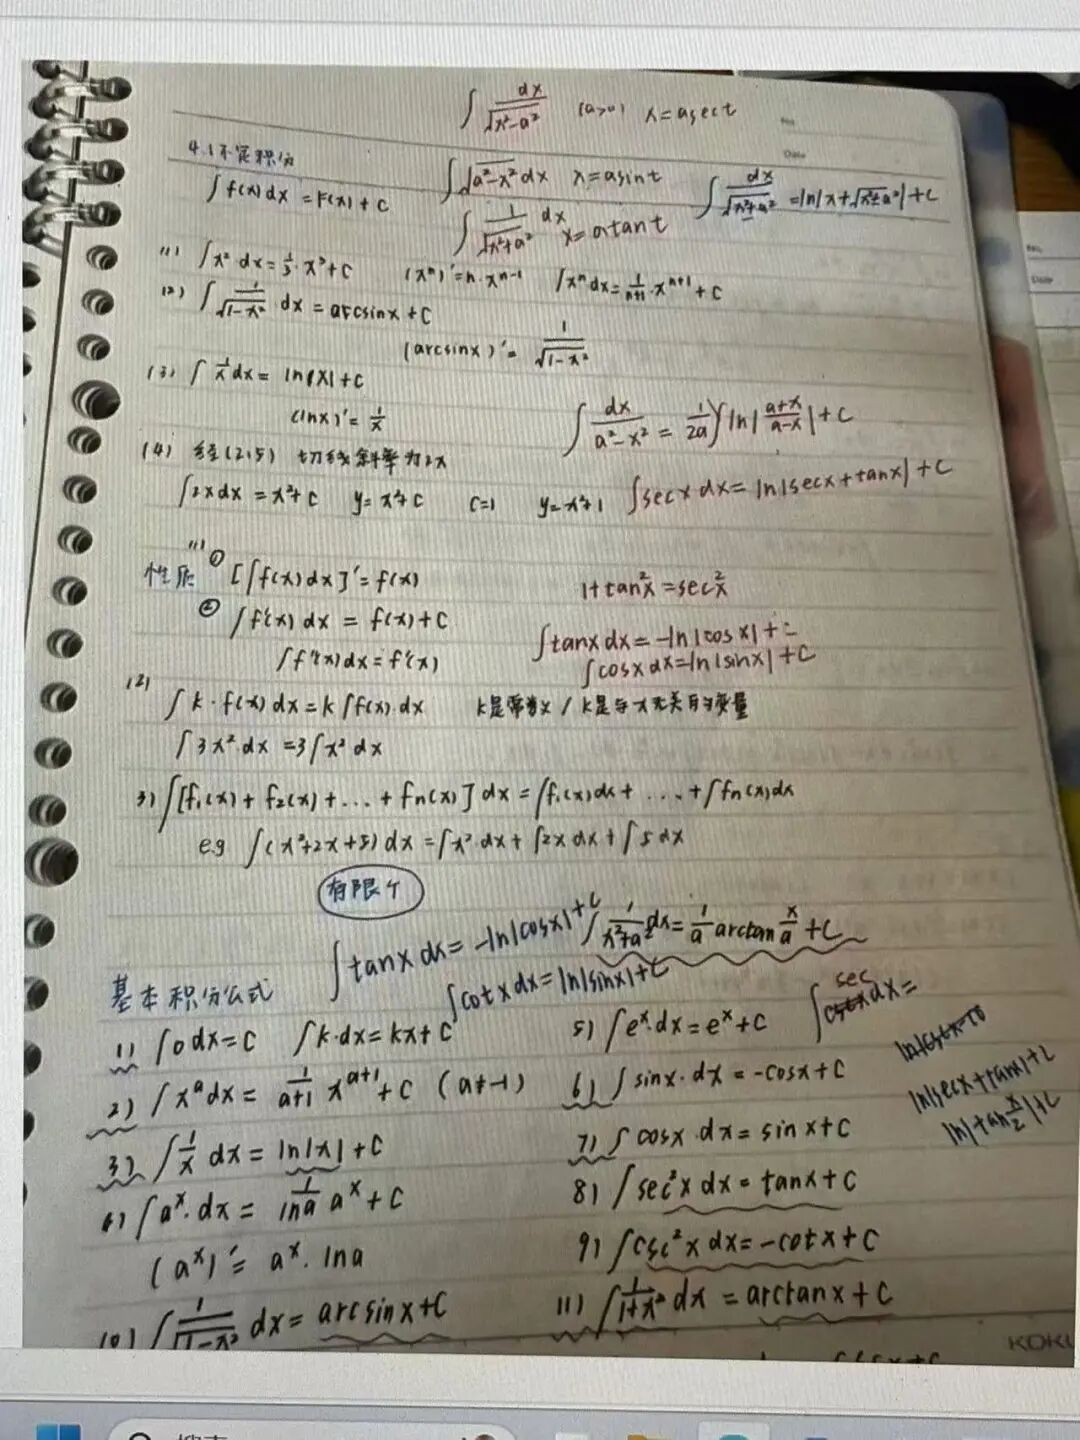 ∫ dx/√(x²-a²) (a>0) x=asect
No.
Date
4.1不定积分
∫√(a²-x²) dx x=asint
∫f(x)dx = F(x)+C
∫ dx/√(x²±a²) = ln|x+√(x²±a²)|+C
∫ 1/√(x²+a²) dx x=atant
(1) ∫x² dx = 1/3·x³+C (xⁿ)'=n·xⁿ⁻¹ ∫xⁿdx = 1/(n+1)·xⁿ⁺¹+C
(2) ∫ 1/√(1-x²) dx = arcsinx+C
(arcsinx)' = 1/√(1-x²)
(3) ∫ 1/x dx = ln|x|+C
(lnx)' = 1/x
∫ dx/(a²-x²) = 1/2a ln|(a+x)/(a-x)|+C
(4) 经(2,5) 切线斜率为2x
∫2xdx = x²+C y=x²+C C=1 y=x²+1
∫secx dx = ln|secx+tanx|+C
性质 (1) ① [∫f(x)dx]'=f(x)
1+tan²x=sec²x
② ∫f'(x)dx = f(x)+C
∫tanxdx=-ln|cosx|+C
∫f''(x)dx=f'(x)
∫cosxdx=ln|sinx|+C
(2) ∫k·f(x)dx=k∫f(x)·dx k是常数/k是与x无关的变量
∫3x²·dx=3∫x²dx
3) ∫[f₁(x)+f₂(x)+...+fn(x)]dx=∫f₁(x)dx+...+∫fn(x)dx
e.g ∫(x²+2x+5)dx=∫x²·dx+∫2xdx+∫5dx
有限个
∫tanxdx=-ln|cosx|+C
∫ 1/(x²+a²) dx = 1/a arctan x/a +C
∫cotxdx=ln|sinx|+C
基本积分公式
∫secxdx=
ln|secx+tanx|+C
ln|tan x/2|+C
1) ∫0dx=C ∫k·dx=kx+C
2) ∫xᵃdx = 1/(a+1) xᵃ⁺¹+C (a≠-1)
3) ∫ 1/x dx=ln|x|+C
4) ∫aˣ·dx = 1/lna aˣ+C
(aˣ)'=aˣ·lna
5) ∫eˣ·dx=eˣ+C
6) ∫sinx·dx=-cosx+C
7) ∫cosx·dx=sinx+C
8) ∫sec²xdx=tanx+C
9) ∫csc²xdx=-cotx+C
10) ∫ 1/√(1-x²) dx=arcsinx+C
11) ∫ 1/(1+x²) dx=arctanx+C
No.
Date